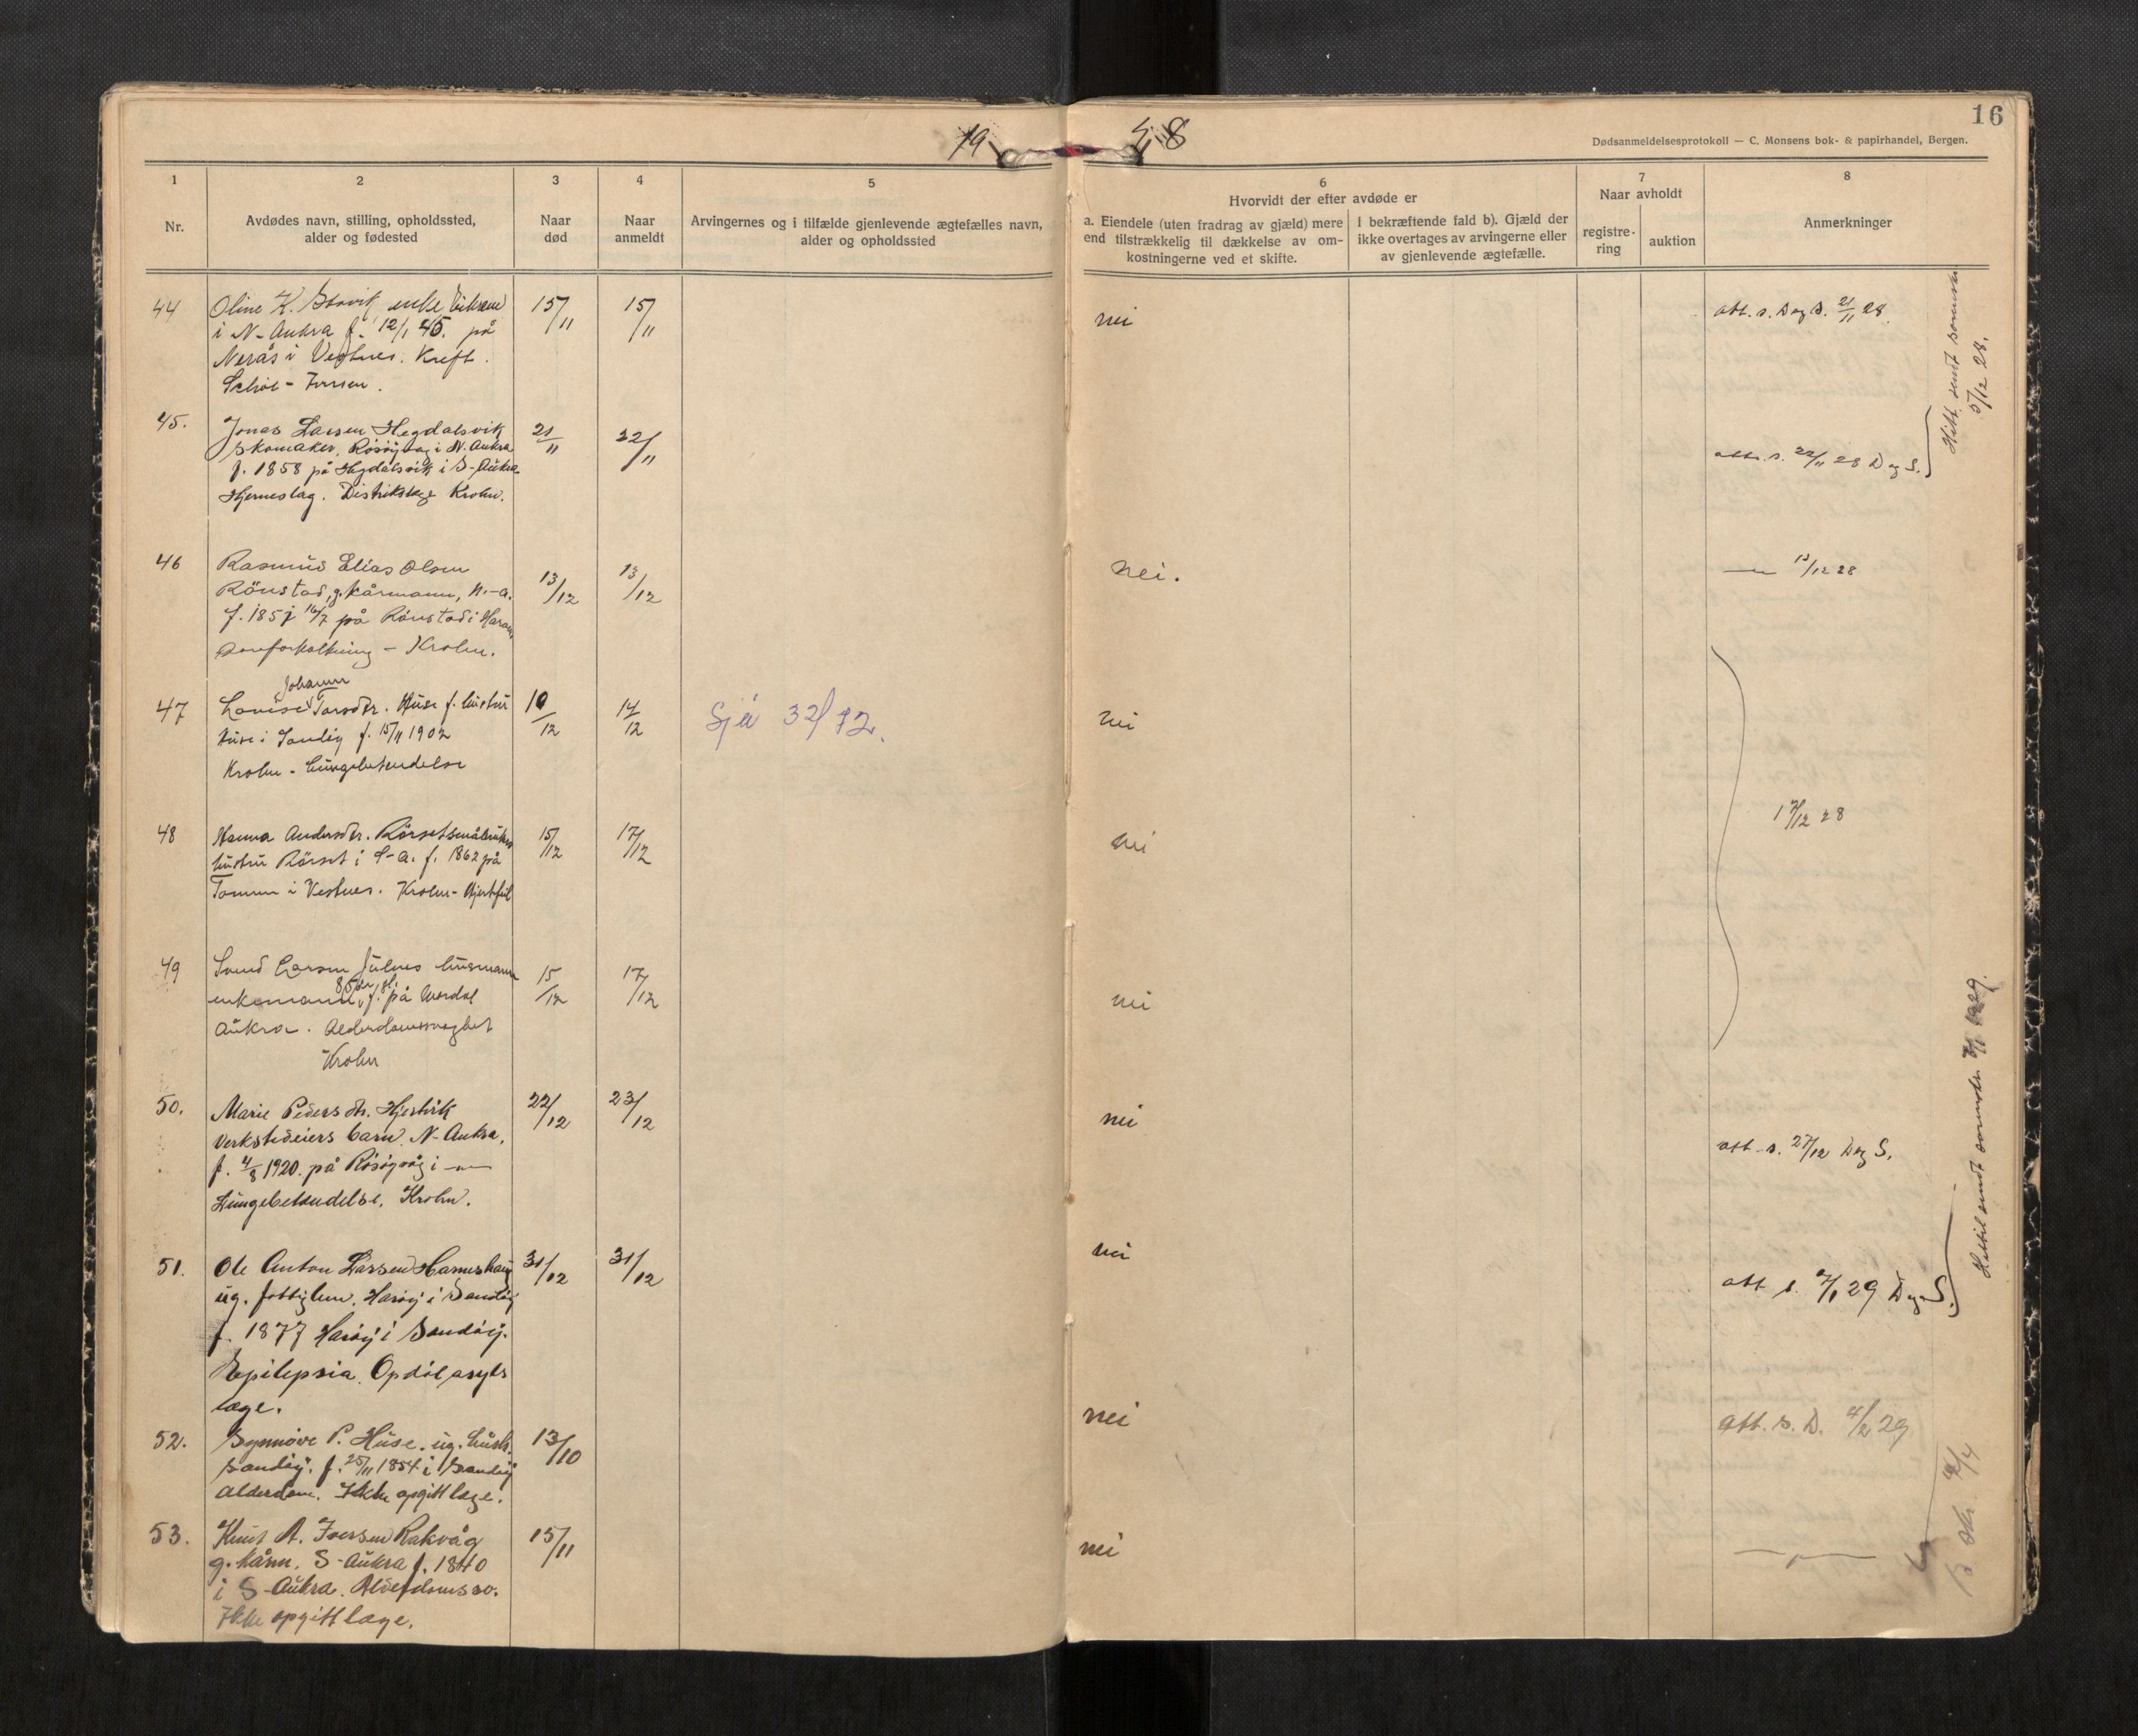 16
19 28
Dødsanmeldelsesprotokoll — C. Monsens bok- & papirhandel, Bergen.
1
Nr.
2
Avdødes navn, stilling, opholdssted,
alder og fødested
3
Naar
død
4
Naar
anmeldt
5
Arvingernes og i tilfælde gjenlevende ægtefælles navn,
alder og opholdssted
6
Hvorvidt der efter avdøde er
a. Eiendele (uten fradrag av gjæld) mere
end tilstrækkelig til dækkelse av om-
kostningerne ved et skifte.
I bekræftende fald b). Gjæld der
ikke overtages av arvingerne eller
av gjenlevende ægtefælle.
7
Naar avholdt
registre-
ring
auktion
8
Anmerkninger
44
Oline K. enke
i N-Aukra f. 12/1 45. på
Nerås i Vestnes. Kreft.
15/11
15/11
nei
att. s. D og S. 21/11 28
45.
Jonas Larsen Hegdalsvik
skomaker, Rösöyvåg i N. Aukra
f. 1858 på Hegdalsvik i S-Aukra
Hjerneslag. Distriktslege Krohn.
21/11
22/11
att. s. 22/11 28 D og S.
5/12 28.
46
Rasmus Elias Olsen
Rönstad, g. kårmann, N.-A.
f. 1851 16/7 på Rönstad i Haram
- Krohn.
13/12
13/12
nei.
— " 13/12 28
47
Johanne
Lovise Tarsdtr. Huse f. hustru
Huse i Sandöy f. 15/11 1902
Krohn - Lungebetendelse
10/12
14/12
Sjå 32/72.
nei
48
Hanna Andersdtr. Rörset småbruker
hustru Rörset i S-A. f. 1862 på
i Vestnes. Krohn - Hjertefeil
15/12
17/12
nei
17/12 28
49
Larsen Julnes husmann
85 år gl.
enkemann, f. på
Aukra. Alderdomssvaghet
Krohn
15/12
17/12
nei
50.
Marie Pedersdtr. Hjertvik
Verkstedeiers barn. N-Aukra,
f. 4/8 1920. på Rösöyvåg i — " —
Lungebetendelse. Krohn.
22/12
23/12
nei
att. s. 27/12 D og S.
51.
Ole Anton Larsen
ug. fattiglem. Haröy i Sandöy
f. 1877 Haröy i Sandöy.
Epilepsia. Opdöl asyls
læge.
31/12
31/12
nei
att. s. 2/1 29 D og S.
52.
Synnöve P. Huse. ug. hush.
Sandöy. f. 25/11 1854 i Sandöy
Alderdom. Ikke opgitt læge.
13/10
nei
att. s. D. 4/2 29
53.
Knut A. Iversen Rakvåg
g. kårm. S-Aukra f. 1840
i S-Aukra. Alderdomssv.
Ikke opgitt læge.
15/11
nei
— " —